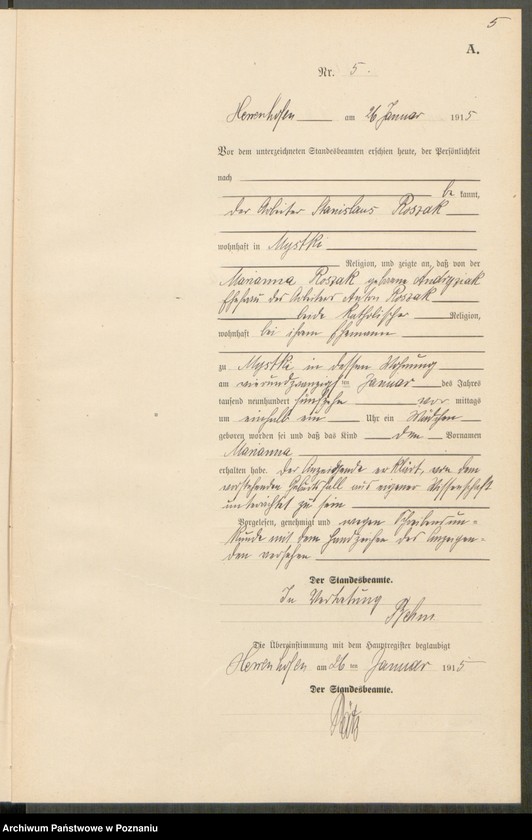 5
A.
Nr. 5.
Herrenhofen am 26 Januar 1915
Vor dem unterzeichneten Standesbeamten erschien heute, der Persönlichkeit
nach
be kannt,
der Arbeiter Stanislaus Roszak
wohnhaft in Mystki
Religion, und zeigte an, daß von der
Marianna Roszak geborene Andrzejak
Ehefrau des Arbeiters Anton Roszak
beide katholischer Religion,
wohnhaft bei ihrem Ehemanne
zu Mystki in dessen Wohnung
am vierundzwanzigsten Januar des Jahres
tausend neunhundert fünfzehn vor mittags
um einhalb ein Uhr ein Mädchen
geboren worden sei und daß das Kind den Vornamen
Marianna
erhalten habe. Der Anzeigende erklärt, von dem
vorstehenden Geburtsfall aus eigener Wissenschaft
unterrichtet zu sein
Vorgelesen, genehmigt und wegen Schreibensun-
kunde mit dem Handzeichen des Anzeigen-
den versehen
Der Standesbeamte.
In Vertretung
Die Übereinstimmung mit dem Hauptregister beglaubigt
Herrenhofen am 26 ten Januar 1915
Der Standesbeamte.
Archiwum Państwowe w Poznaniu